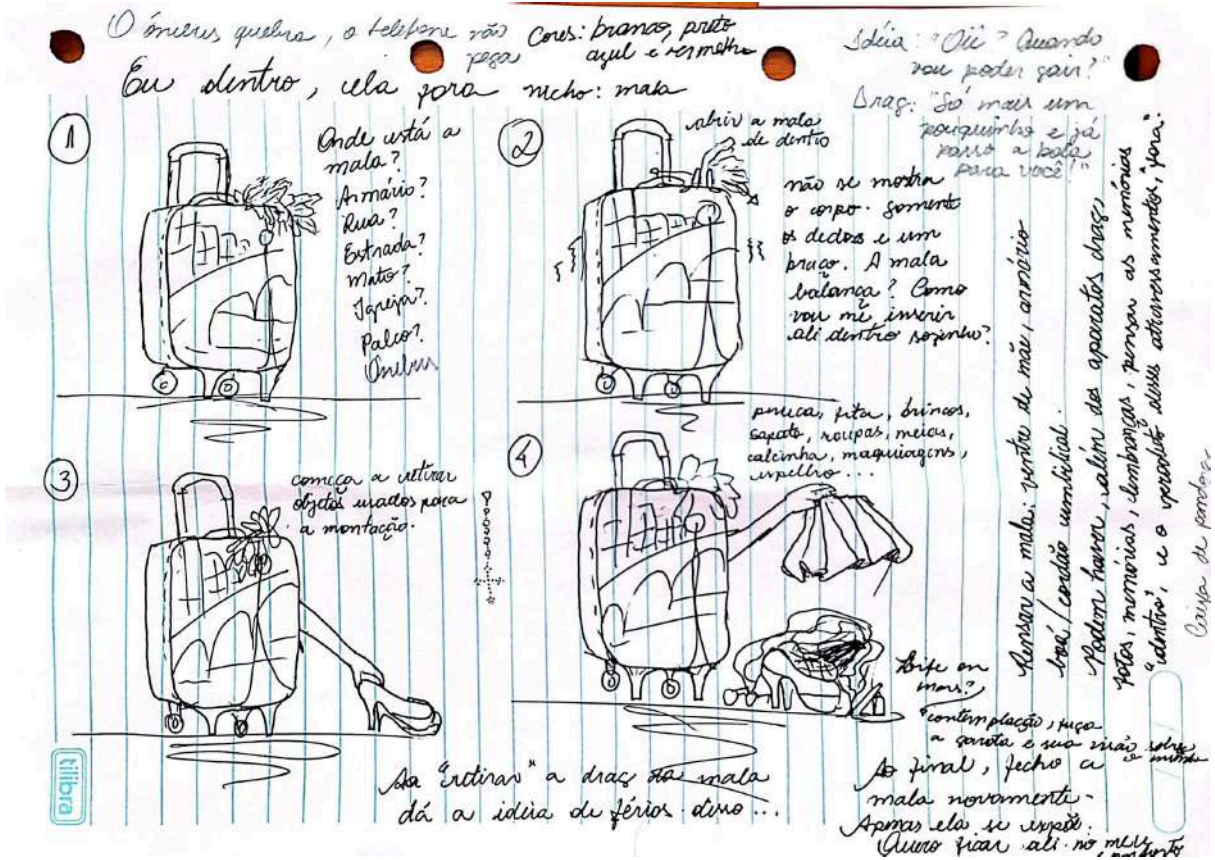 O ônibus quebra, o telefone não
pega
Cores: branco, preto
azul e vermelho
Eu dentro, ela fora nicho: mala
Idéia: "Oii? Quando
vou poder sair?"
Drag: "Só mais um
pouquinho e já
passo a bola
para você!"
1
Onde está a
mala?
Armário?
Rua?
Estrada?
Mato?
Igreja?
Palco?
Ônibus
2
abrir a mala
de dentro
não se mostra
o corpo. Somente
os dedos e um
braço. A mala
balança? Como
vou me inserir
ali dentro sozinho?
3
começa a retirar
objetos usados para
a montação.
4
peruca, fita, brincos,
sapato, roupas, meias,
calcinha, maquiagens,
espelho...
Ao "retirar" a drag da mala
dá a idéia de férias disso...
Life on
mars?
"contemplação, fuga
a garota e sua visão sobre
o mundo
Ao final, fecho a
mala novamente.
Apenas ela se expôs.
Quero ficar ali no meu
Pensar a mala: ventre de mãe, armário
boá/cordão umbilical.
Podem haver, além dos aparatos drags,
fotos, memórias lembranças, pensar as memórias
"dentro", e o quando desses atravessamentos, "fora".
Caixa de pandora
tilibra